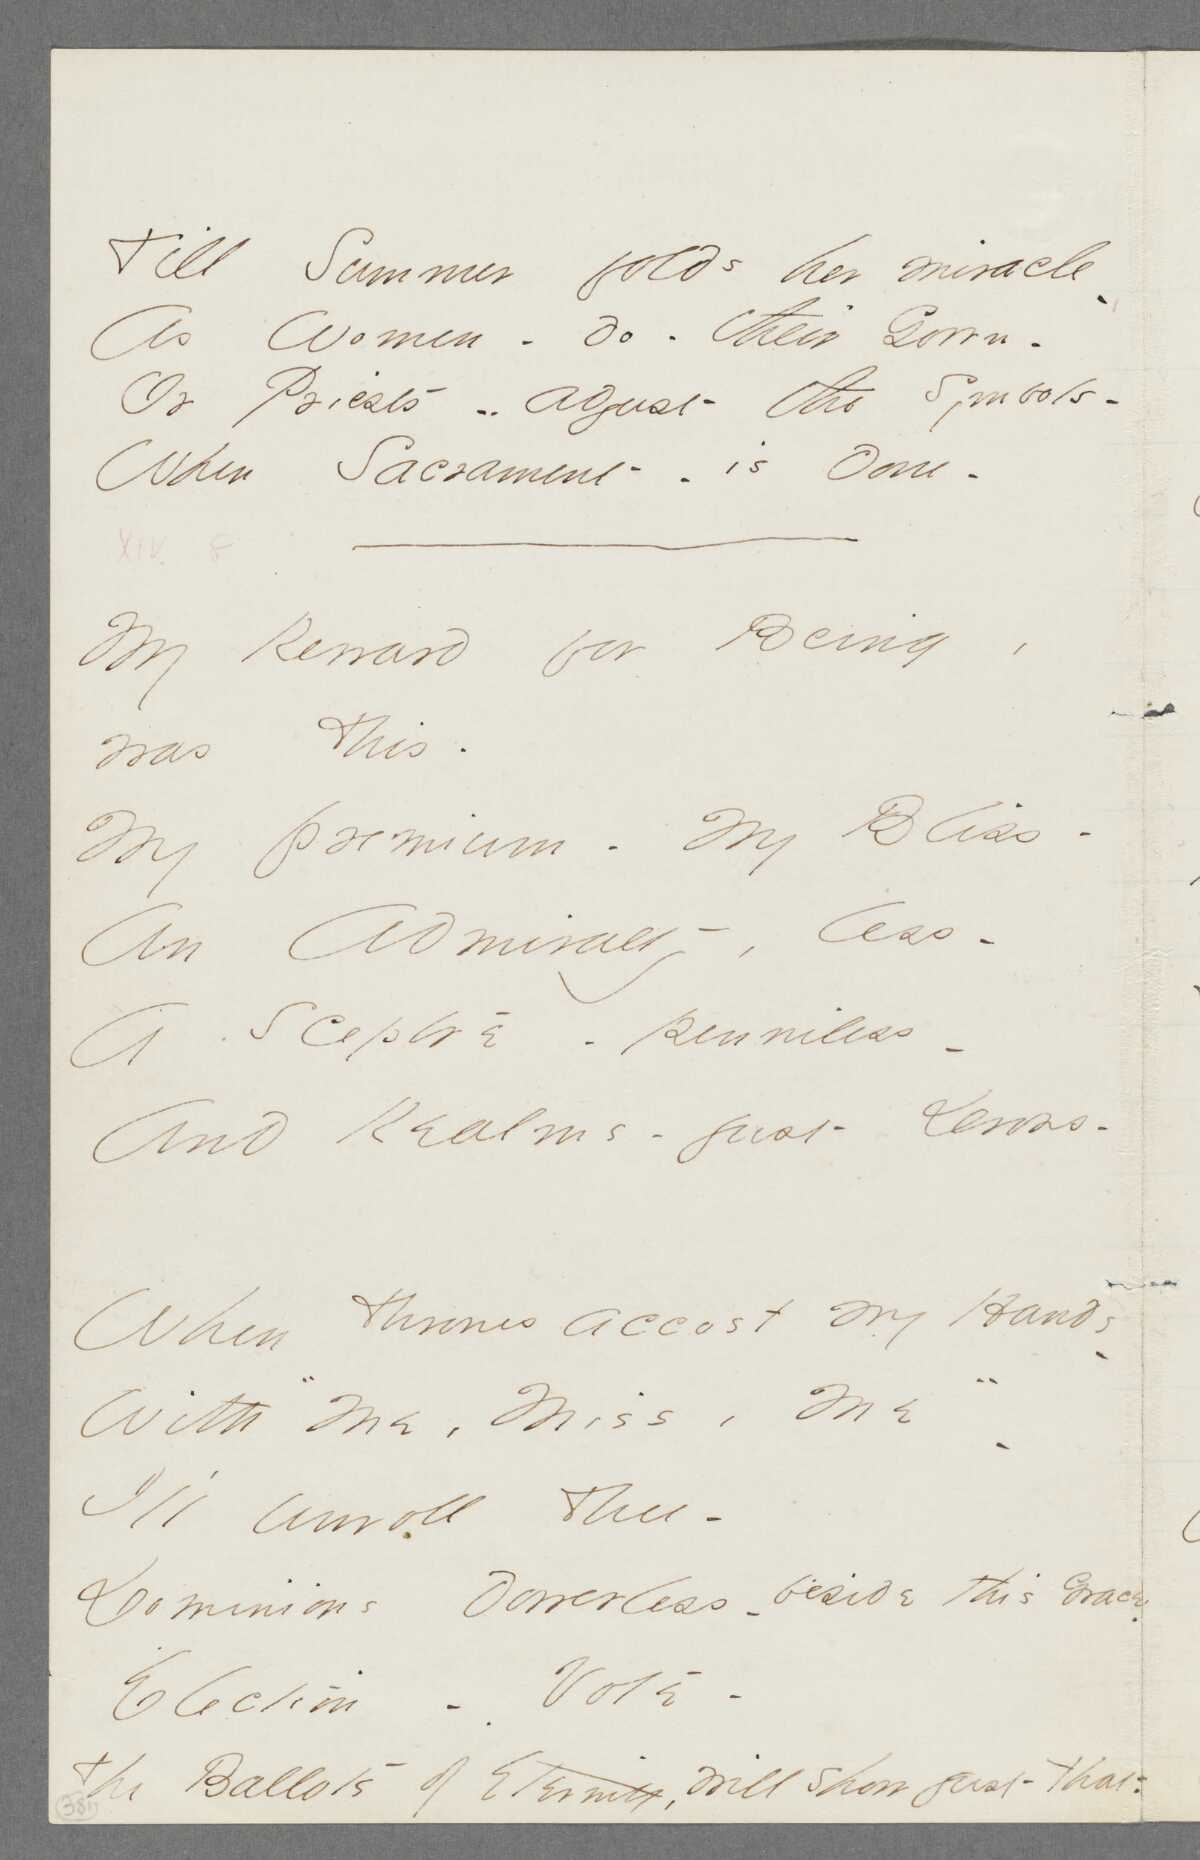 Till Summer folds her miracle -
As Women - do - their Gown -
Or Priests - adjust the Symbols -
When Sacrament - is done -
XIV. 8
My Reward for Being,
was this -
My premium - My Bliss -
An Admiralty, less -
A Sceptre - penniless -
And Realms - just Dross -
When Thrones accost my Hands -
With "Me, Miss, Me" -
I'll unroll Thee -
Dominions dowerless - beside this Grace -
Election - Vote -
The Ballots of Eternity, will show just that -